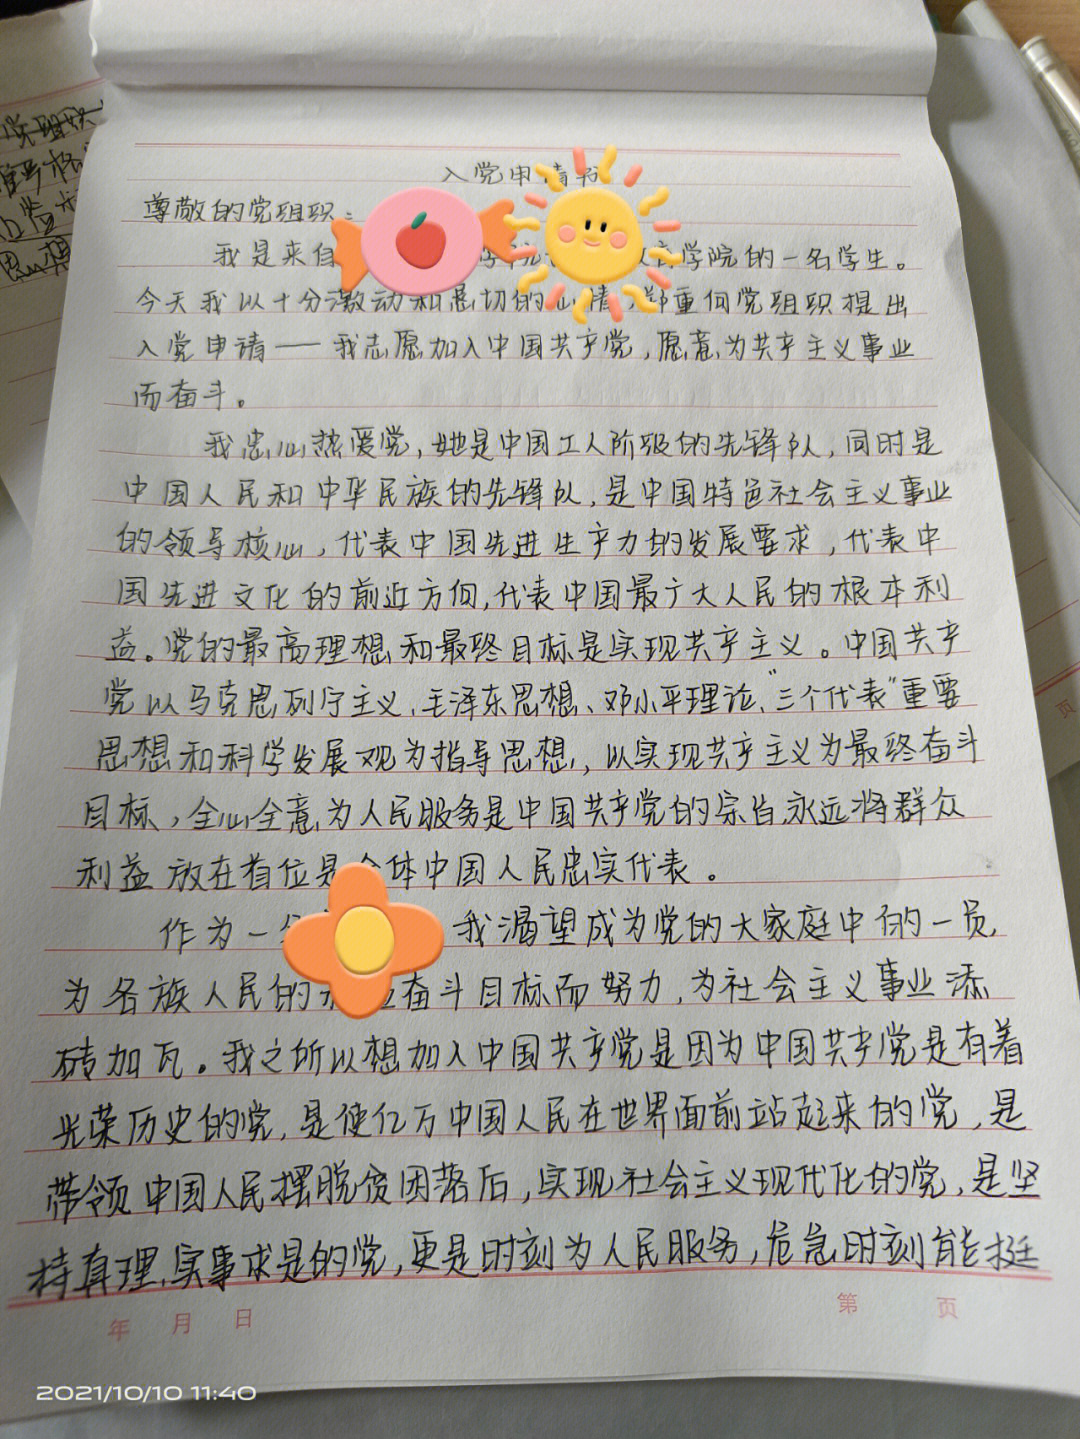 入党申请书
尊敬的党组织：
我是来自 学院 教育学院的一名学生。
今天我以十分激动和恳切的心情，郑重向党组织提出
入党申请——我志愿加入中国共产党，愿意为共产主义事业
而奋斗。
我忠心热爱党，她是中国工人阶级的先锋队，同时是
中国人民和中华民族的先锋队，是中国特色社会主义事业
的领导核心，代表中国先进生产力的发展要求，代表中
国先进文化的前近方向，代表中国最广大人民的根本利
益。党的最高理想和最终目标是实现共产主义。中国共产
党以马克思列宁主义、毛泽东思想、邓小平理论、“三个代表”重要
思想和科学发展观为指导思想，以实现共产主义为最终奋斗
目标，全心全意为人民服务是中国共产党的宗旨，永远将群众
利益放在首位是全体中国人民忠实代表。
作为一 我渴望成为党的大家庭中的一员，
为各族人民的 奋斗目标而努力，为社会主义事业添
砖加瓦。我之所以想加入中国共产党是因为中国共产党是有着
光荣历史的党，是使亿万中国人民在世界面前站起来的党，是
带领中国人民摆脱贫困落后，实现社会主义现代化的党，是坚
持真理，实事求是的党，更是时刻为人民服务，危急时刻能挺
年 月 日 第 页
页
2021/10/10 11:40